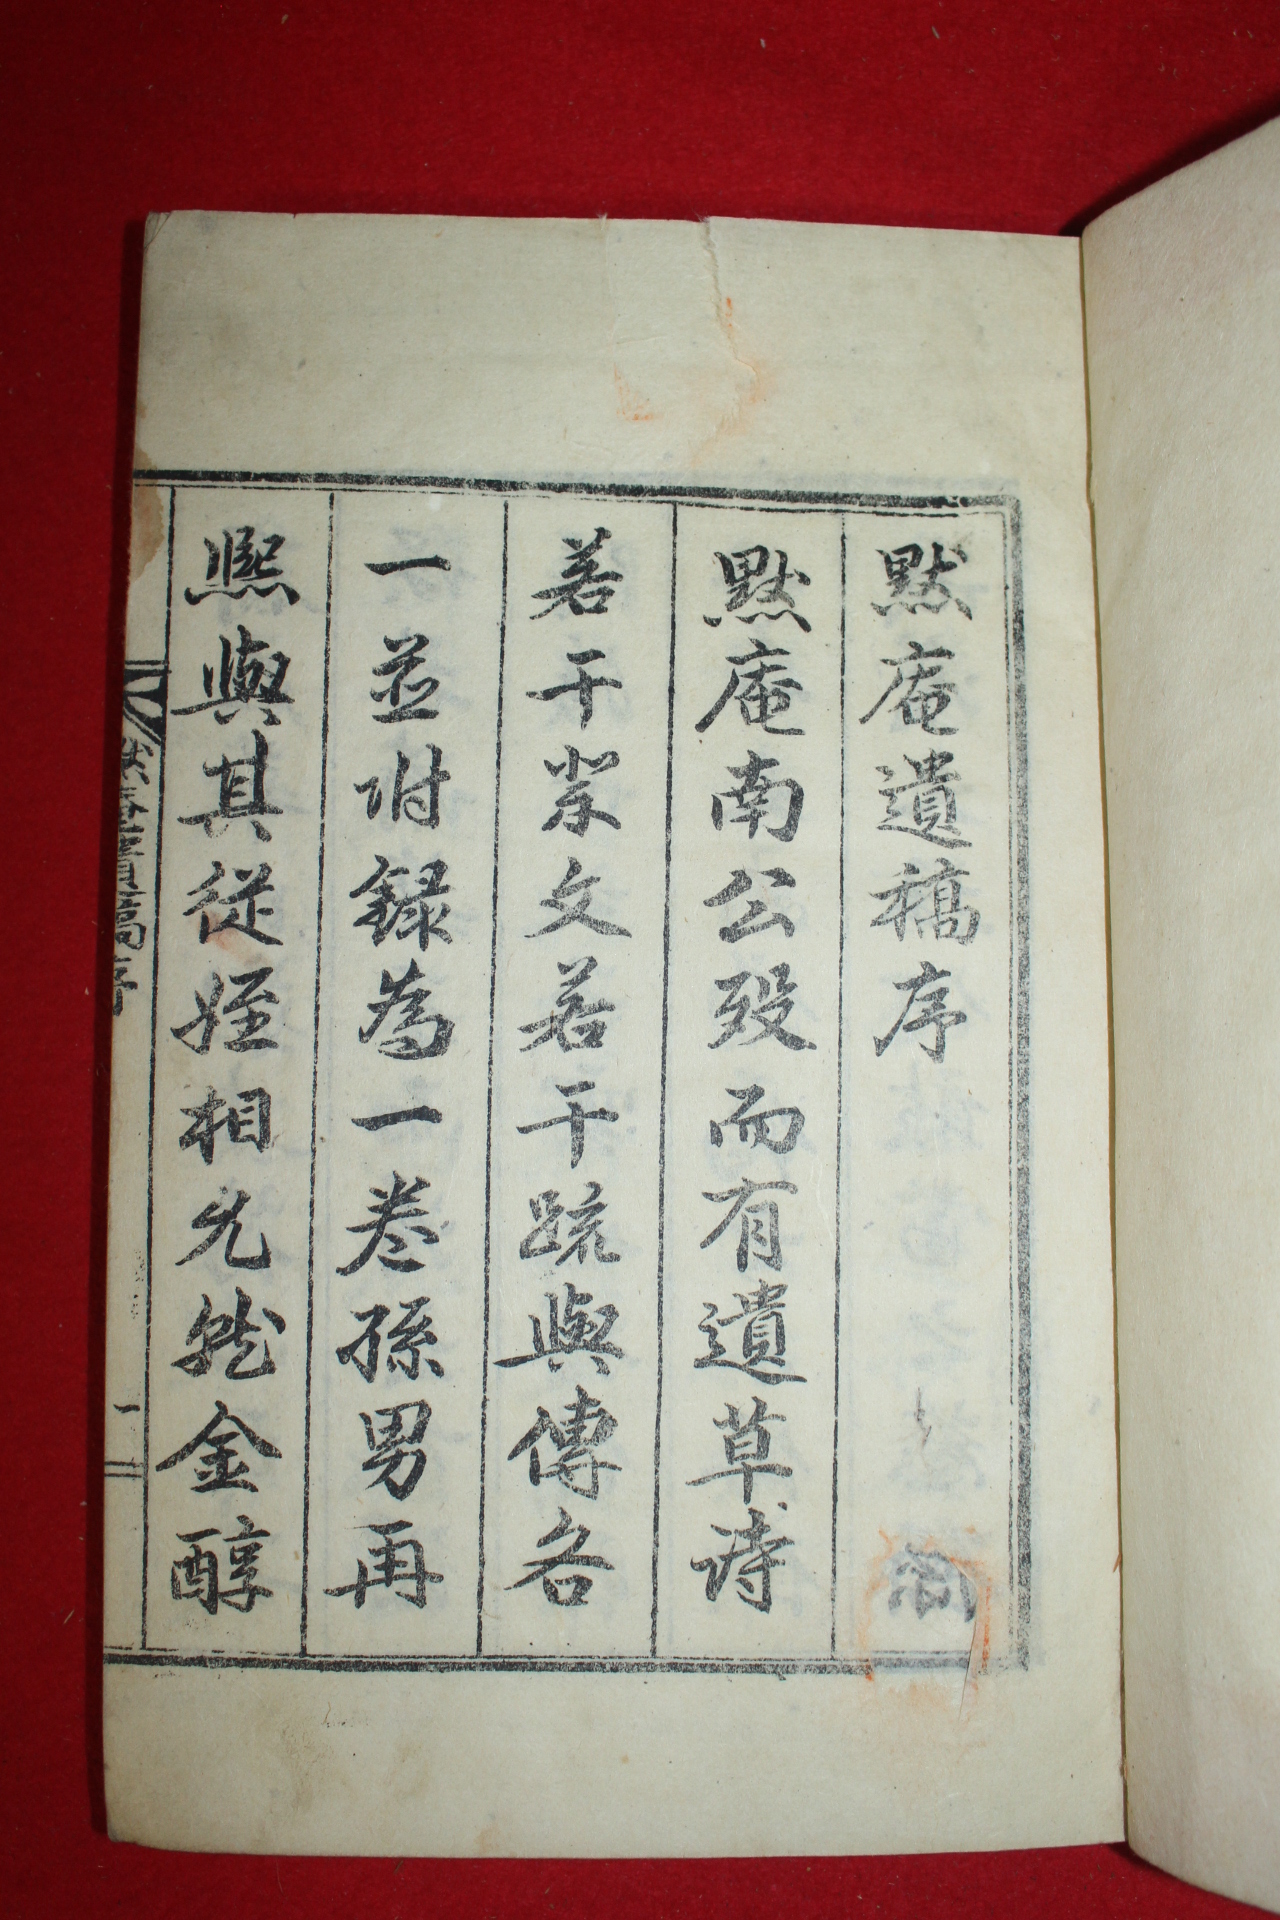 默庵遺稿序
默庵南公歿而有遺草詩
若干絫文若干疏與傳各
一並附錄為一卷孫男再
熈與其從姪相允就金醇
默庵遺稿序
一